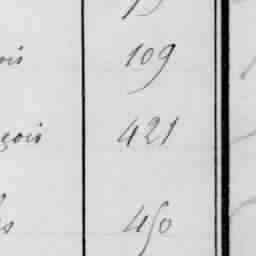 ois 109
çois 421
s 450